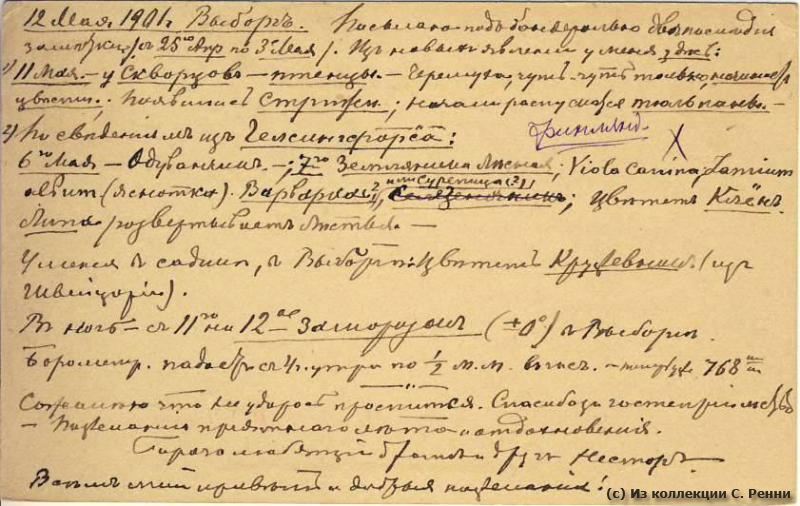 12 Мая 1901 г. Выборгъ. Посылаю подъ бандеролью
замѣтки /съ 25го Апр по 3е Мая/. Изъ новыхъ явленій у меня здѣсь:
1) 11 Мая – у Скворцовъ – птенцы. – Черемуха, чуть-чуть только
цвести.; появились Стрижи; начали распускаться тюльпаны. –
2) По свѣдѣніямъ изъ Гельсингфорса: Финлянд. X
6го Мая – Одуванчикъ. –; 7го Земляника лѣсная; Viola canina, Lamium
или Сурепица (?)
album (яснотка). Варварка?, ; цвѣтетъ Клёнъ.
Липа развертываетъ листья. –
У меня въ садикѣ, въ Выборгѣ: цвѣтетъ Крыжевникъ. (изъ
Швейцаріи).
Въ ночь съ 11го на 12ое заморозокъ (±0°) въ Выборгѣ.
Барометр. падаетъ съ 4 ч. утра по ½ м.м. въ час. – 768 mm
Сожалѣю что не удалось проститься. Спасибо за гостепріимство
– Пожеланія пріятнаго лѣта и отдохновенія.
Горячо любящій и другъ Несторъ.
Всѣмъ мой привѣтъ и добрыя пожеланія!
(c) Из коллекции С. Ренни